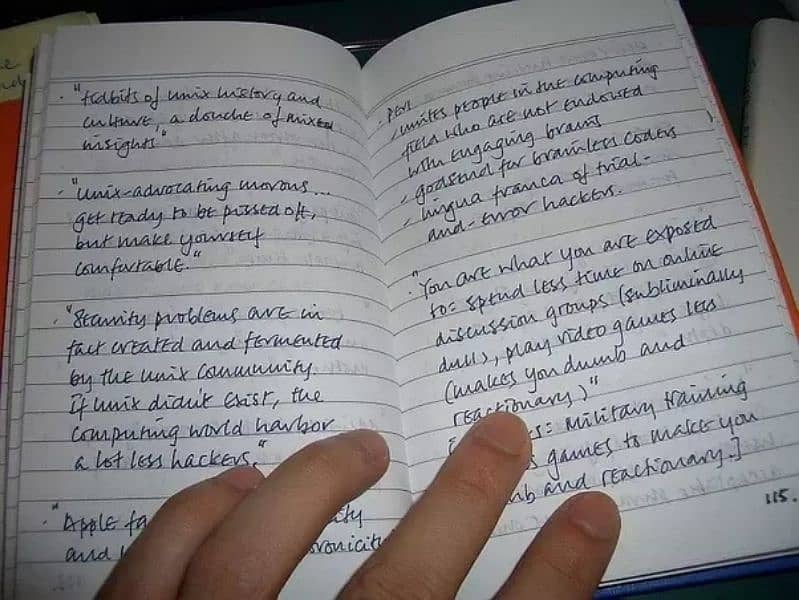 . "tidbits of unix history and
culture, a douche of mixed
insights"
. "Unix-advocating morons...
get ready to be pissed off,
but make yourself
comfortable."
. "Security problems are in
fact created and fermented
by the unix community.
If unix didn't exist, the
computing world harbor
a lot less hackers."
. "Apple
and
Perl
- unites people in the computing
field who are not endowed
with engaging brains
- godsend for brainless coders
- lingua franca of trial-
and-error hackers.
. "You are what you are exposed
to: spend less time on online
discussion groups (subliminally
dull), play video games less
(makes you dumb and
reactionary)"
military training
games to make you
and reactionary.]
115.